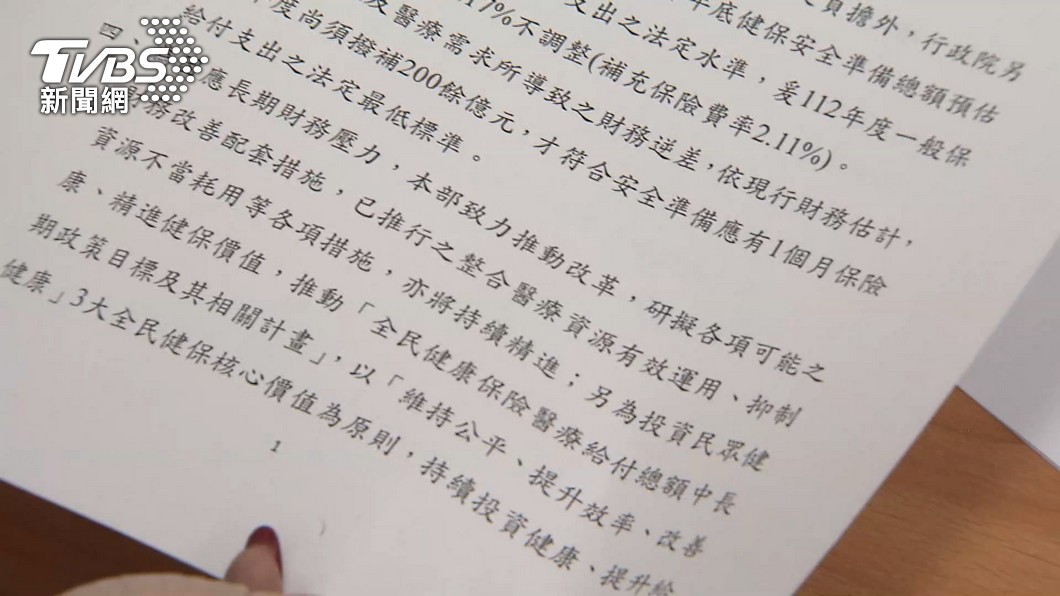 TVBS
新聞網
員擔外，行政院另
年底健保安全準備總額預估
支出之法定水準，爰112年度一般保
17%不調整(補充保險費率2.11%)。
及醫療需求所導致之財務逆差，依現行財務估計，
年度尚須撥補200餘億元，才符合安全準備應有1個月保險
給付支出之法定最低標準。
四、應長期財務壓力，本部致力推動改革，研擬各項可能之
務改善配套措施，已推行之整合醫療資源有效運用、抑制
資源不當耗用等各項措施，亦將持續精進；另為投資民眾健
康、精進健保價值，推動「全民健康保險醫療給付總額中長
期政策目標及其相關計畫」，以「維持公平、提升效率、改善
健康」3大全民健保核心價值為原則，持續投資健康、提升給
1